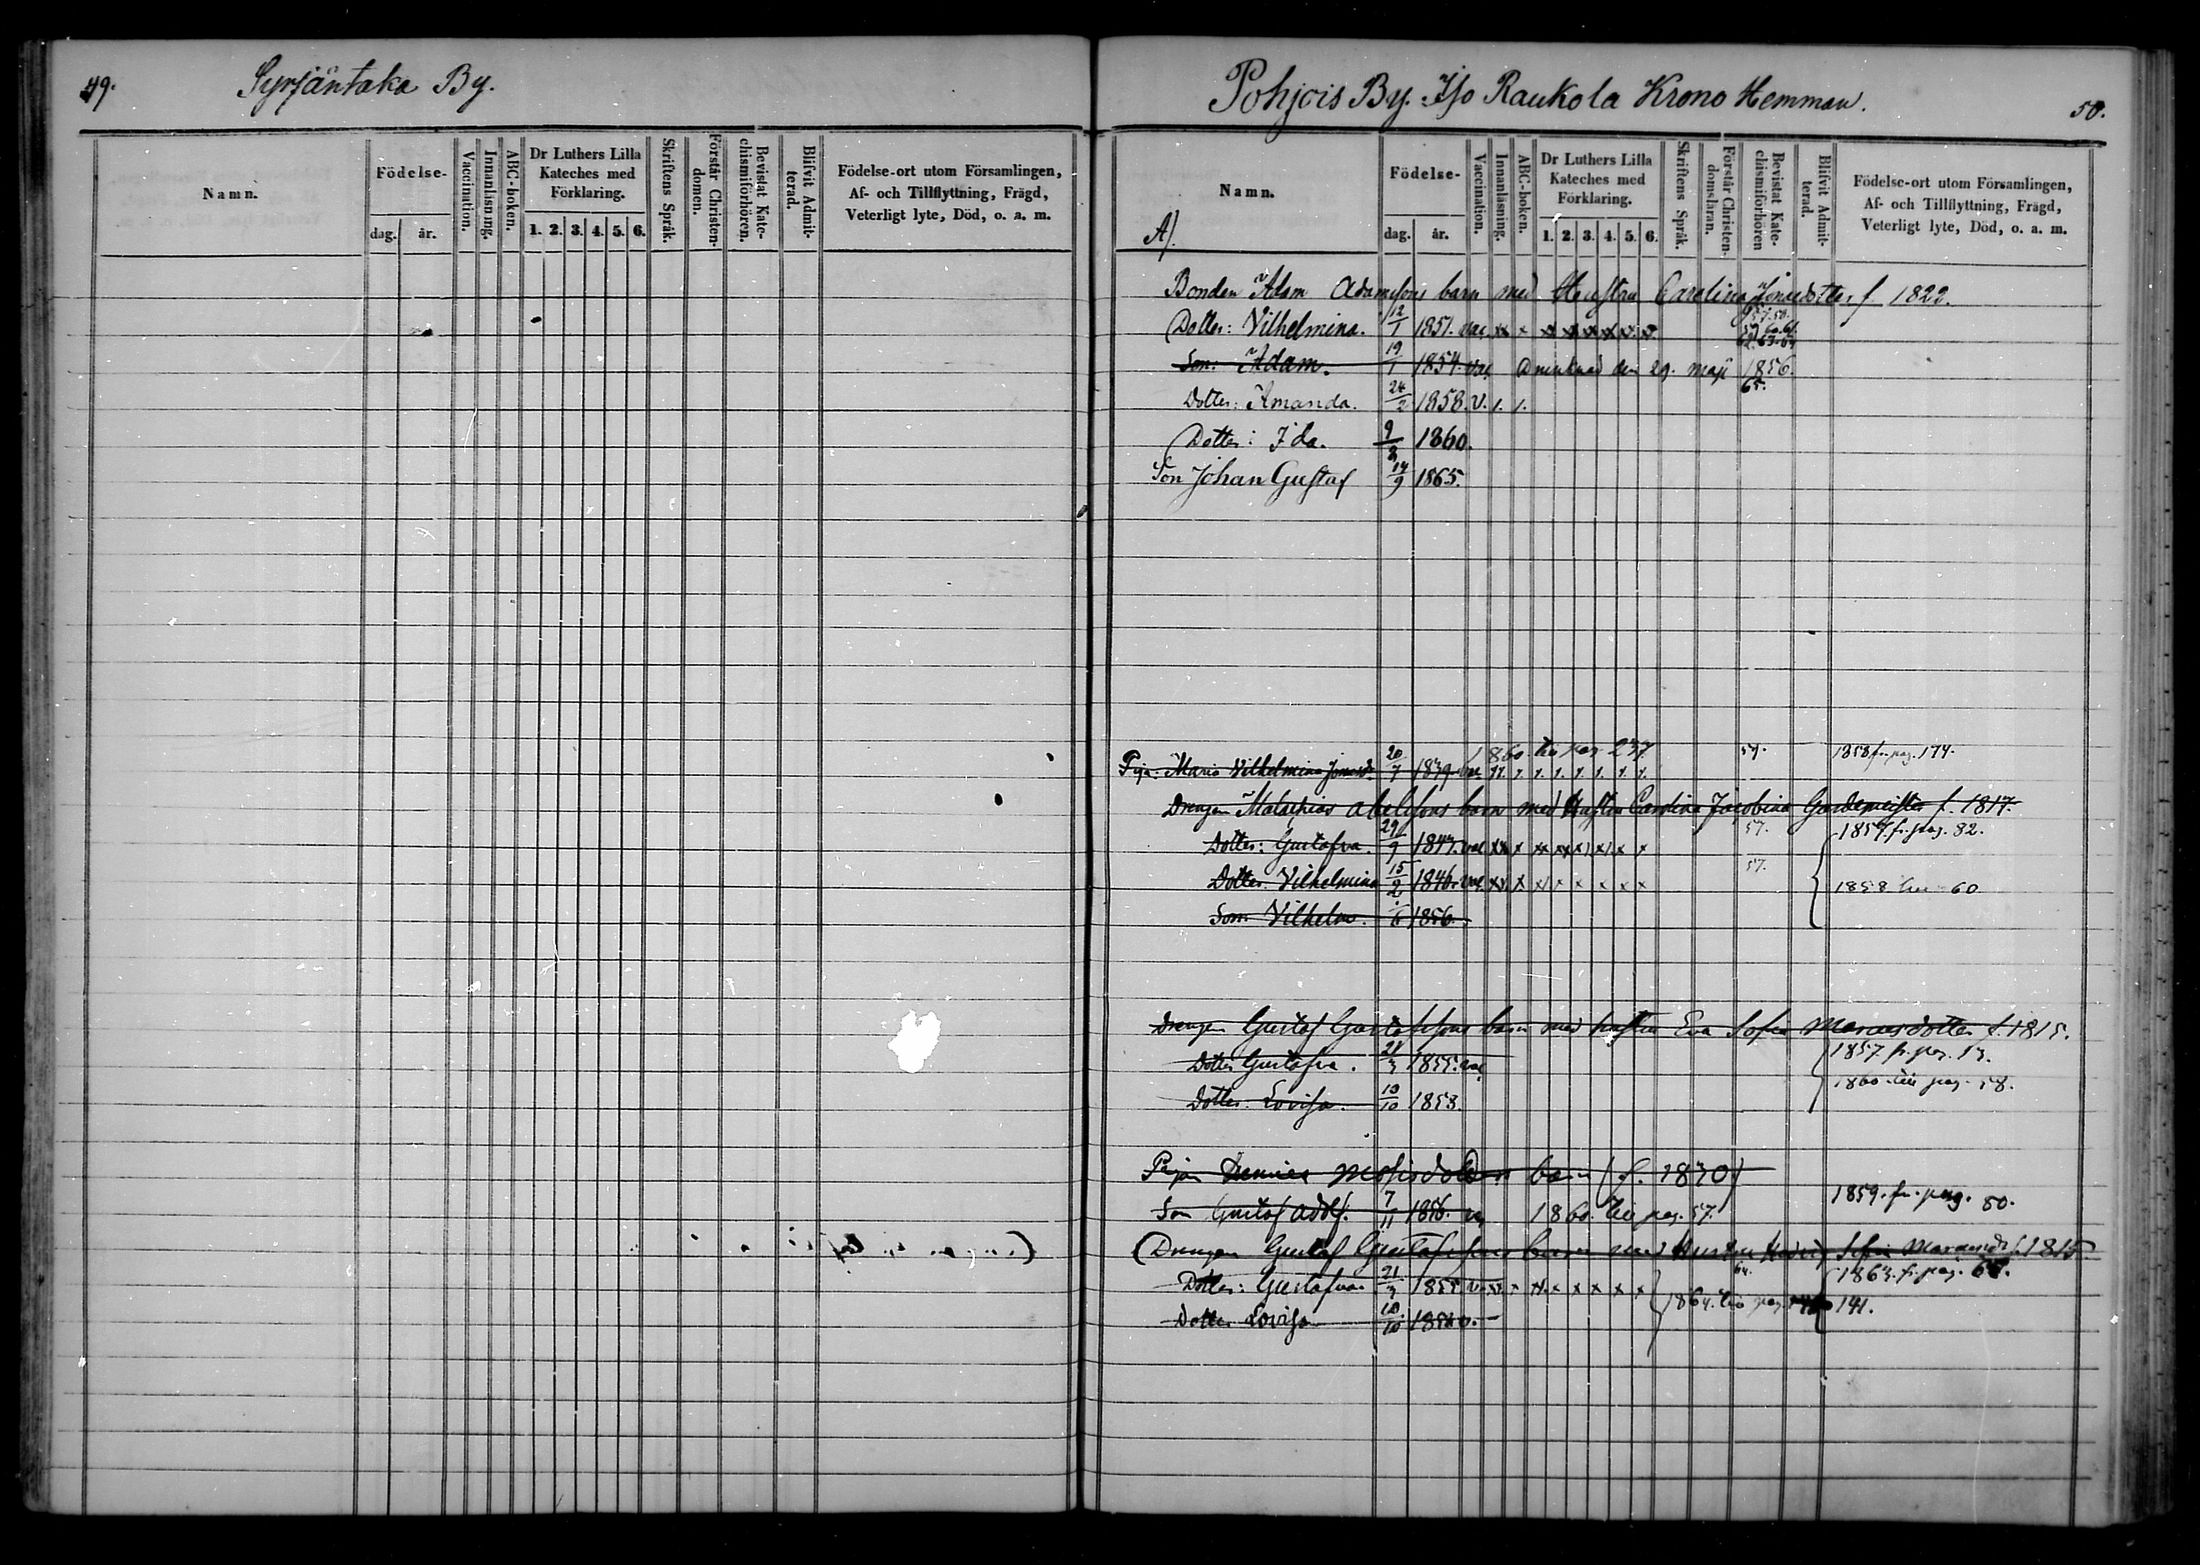 49. Syrjäntaka By.
Namn. Födelse- dag. år. Vaccination. Innanläsning. ABC-boken. Dr Luthers Lilla Kateches med Förklaring. 1. 2. 3. 4. 5. 6. Skriftens Språk. Förstår Christendomen. Bevistat Katechismiförhören. Blifvit Admitterad. Födelse-ort utom Församlingen, Af- och Tillflyttning, Frägd, Veterligt lyte, Död, o. a. m.
Pohjois By. Iso Raukola Krono Hemman. 50.
Namn. Födelse- dag. år. Vaccination. Innanläsning. ABC-boken. Dr Luthers Lilla Kateches med Förklaring. 1. 2. 3. 4. 5. 6. Skriftens Språk. Förstår Christendomsläran. Bevistat Katechismiförhören Blifvit Admitterad. Födelse-ort utom Församlingen, Af- och Tillflyttning, Frägd, Veterligt lyte, Död, o. a. m.
A).
Bonden Adam Adamssons barn med Hustru Carolina Jonsedotter f. 1822.
Dotter: Vilhelmina. 12/1 1851. vac. xx x xx xx xx xx x. x. 57.58. 59.60.61. 62.63.64
Son: Adam. 19/1 1854. vac. Drunknad den 29. maji 1856.
Dotter: Amanda. 24/2 1858. v. 1. 1. 65.
Dotter: Ida. 9/8 1860.
Son Johan Gustaf 14/9 1865.
1860. till pag. 237.
Piga: Maria Vilhelmina Jonasd. 20/7 1839. vac. 11. 1. 1. 1. 1. 1. 1. 1. 59. 1858 fr. pag. 174.
Drengen Malachias Abelssons barn med Hustru Carolina Jacobina Gardemeister f. 1817.
Dotter: Gustafva. 29/9 1844. vac. xx x xx xx x x x x 57. 1857. fr. pag. 82.
Dotter Vilhelmina 15/2 1846. vac. xx. x x x x x x x 57. 1858 till 60
Son: Vilhelm. 1856.
Drengen Gustaf Gustafssons barn med hustru Eva Sofia Marcusdotter f. 1815.
Dotter Gustafva. 21/3 1855. vac. 1857 fr. pag. 13.
Dotter. Lovisa. 10/10 1858. 1860. till pag. 58.
Pigan barn (f. 1830)
Son Gustaf Adolf. 7/11 1856. v. 1860. till pag. 57. 1859. fr. pag. 80.
(Drengen Gustaf Gustafssons barn med Hustru Sofia Marcusdr f. 1815.
Dotter: Gustafva. 21/3 1855. v. xx. x xx. x x x x x 64. 1863. fr. pag.
Dotter Lovisa 10/10 1858 v. 1864. till pag. 141.